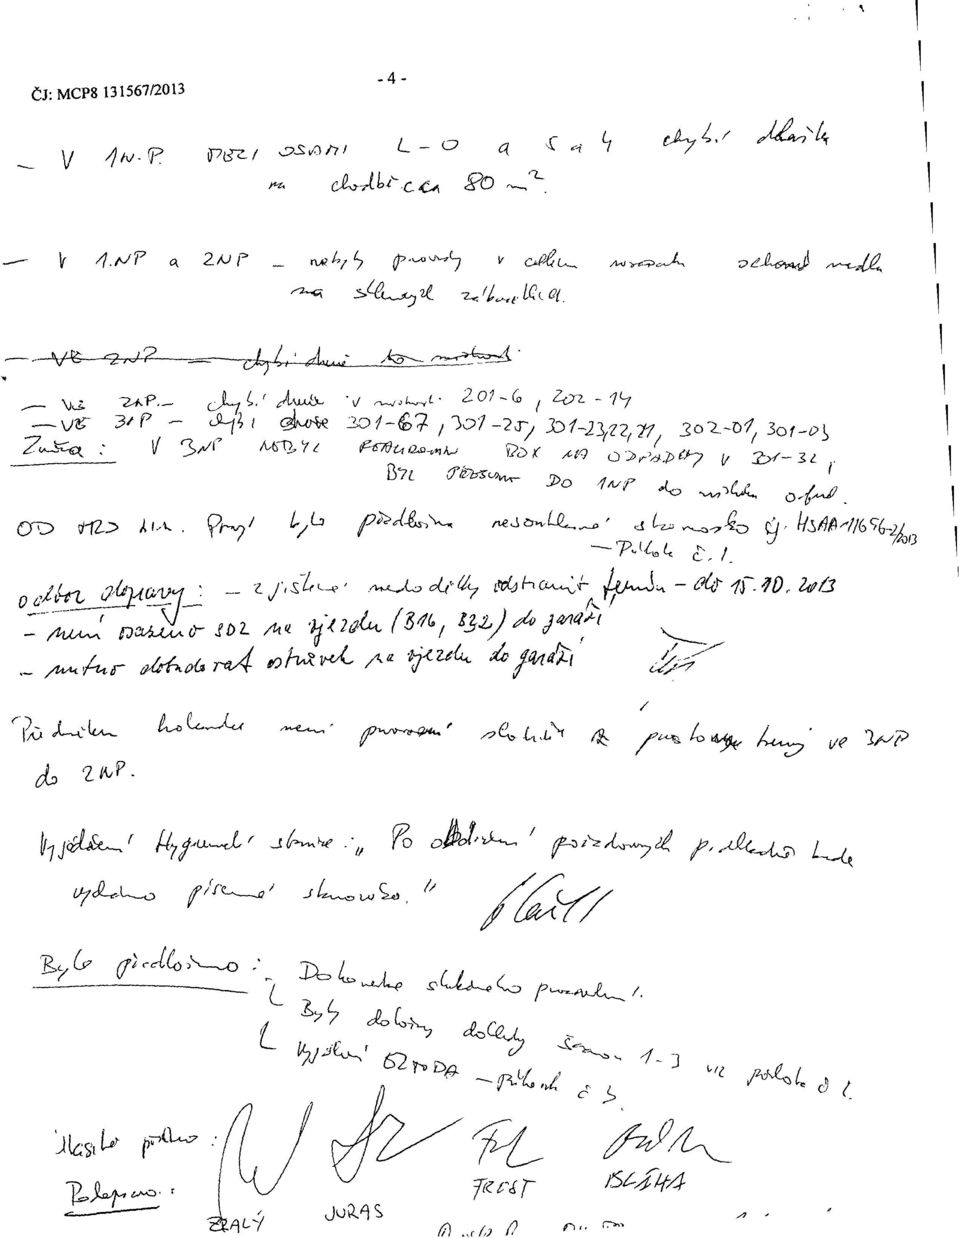 - 4 -
ČJ: MCP8 131567/2013
- V 1N.P. MEZI OSAMI L-O a 5 a 4 chybí dlažba
na chodbě cca 80 m².
- V 1.NP a 2NP - nebyly provedy v celkem rozsahu ochranné madla
na
- VE 2NP - chybí dveře do místnosti
- VE 2NP - chybí dveře v místnosti 201-6, 202-14
- VE 3NP - chybí dveře 301-67, 301-25, 301-23,22,21, 302-01, 301-03
V 3NP NEBYL BOX NA ODPADKY V 301-32,
BYL PŘESUNUT DO 1NP do
OD HZS hl.m. Prahy bylo předloženo nesouhlasné stanovisko čj. HSAA-11656-2/2013
- Příloha č. 1.
odbor dopravy: - zjištěné nedodělky odstranit, termín - do 15.10.2013
- není osazeno SDZ na vjezdu (B16, B32) do garáží
- nutno dobudovat ostrůvek na vjezdu do garáží
není provedení ve 3NP
do 2NP.
Vyjádření Hygienické stanice: „Po obdržení požadovaných podkladů bude
vydáno písemné stanovisko."
Bylo předloženo: - Dokumentace skutečného provedení.
- Byly doloženy doklady Šanon 1-3 viz příloha č 2.
- Vyjádření OZTODA - Příloha č 3.
Hlasitě přečteno:
Podepsáno:
ZRALÝ JURAS FREST